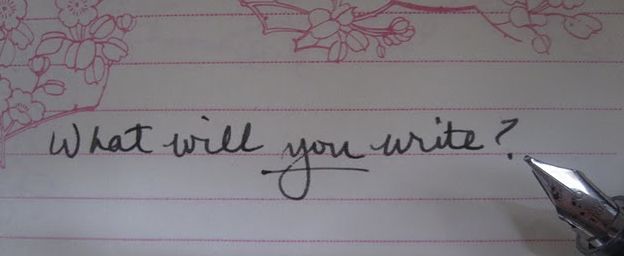 What will you write?